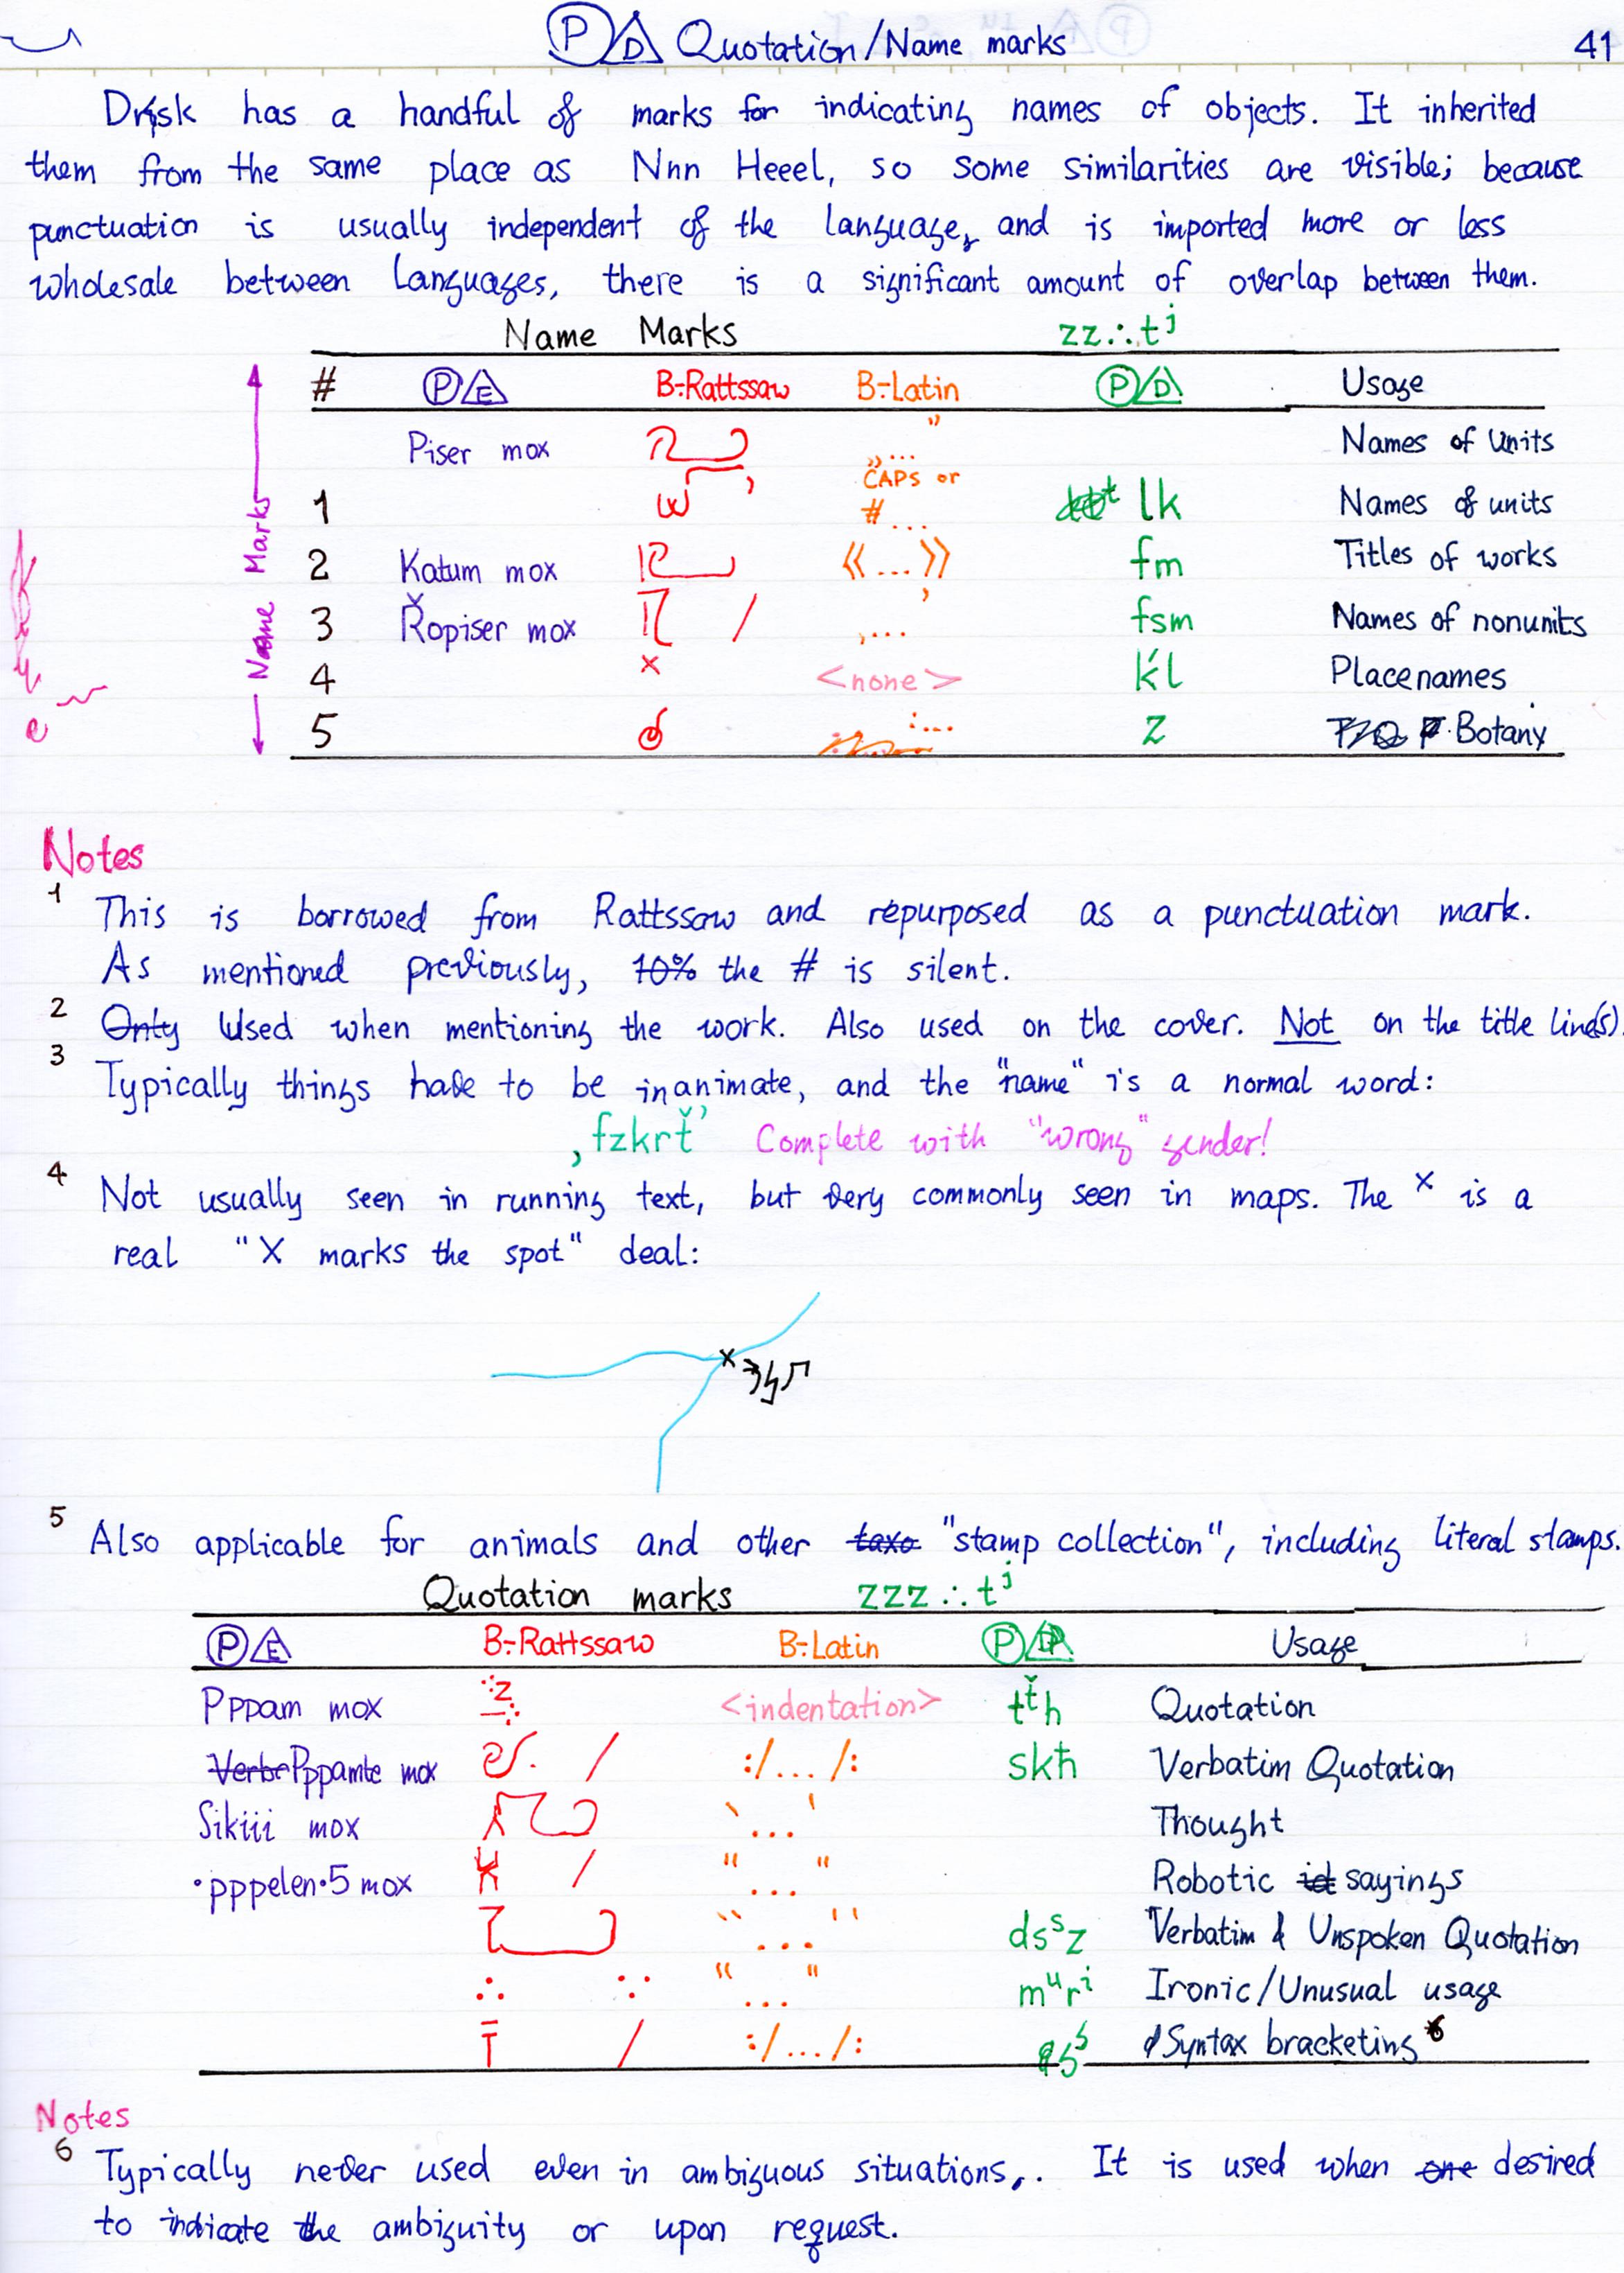 P/D Quotation/Name marks 41
Drısk has a handful of marks for indicating names of objects. It inherited
them from the same place as Nnn Heeel, so some similarities are visible; because
punctuation is usually independent of the language, and is imported more or less
wholesale between languages, there is a significant amount of overlap between them.
Name Marks zz∴tʲ
# P/E B-Rattssaw B-Latin P/D Usage
Piser mox „...” Names of Units
1 CAPS or #... lk Names of units
2 Katum mox 《...》 fm Titles of works
3 Řopiser mox ‚...’ fsm Names of nonunits
4 × <none> ḱl Placenames
5 :... z Botany
Name Marks
Notes
1 This is borrowed from Rattssaw and repurposed as a punctuation mark.
As mentioned previously, 10% the # is silent.
2 Only Used when mentioning the work. Also used on the cover. Not on the title line(s).
3 Typically things have to be inanimate, and the "name" is a normal word:
‚fzkrť’ Complete with "wrong" gender!
4 Not usually seen in running text, but very commonly seen in maps. The × is a
real "X marks the spot" deal:
×
5 Also applicable for animals and other taxo "stamp collection", including literal stamps.
Quotation marks zzz∴tʲ
P/E B-Rattssaw B-Latin P/D Usage
Pppam mox <indentation> tťh Quotation
Verbe Pppamte mox :/.../: skħ Verbatim Quotation
Sikiii mox `...' Thought
·pppelen·5 mox "..." Robotic sayings
``...'' dsˢz Verbatim & Unspoken Quotation
∴ ∵ "..." mᵘrⁱ Ironic/Unusual usage
/ :/.../: Syntax bracketing 6
Notes
6 Typically never used even in ambiguous situations,. It is used when one desired
to indicate the ambiguity or upon request.